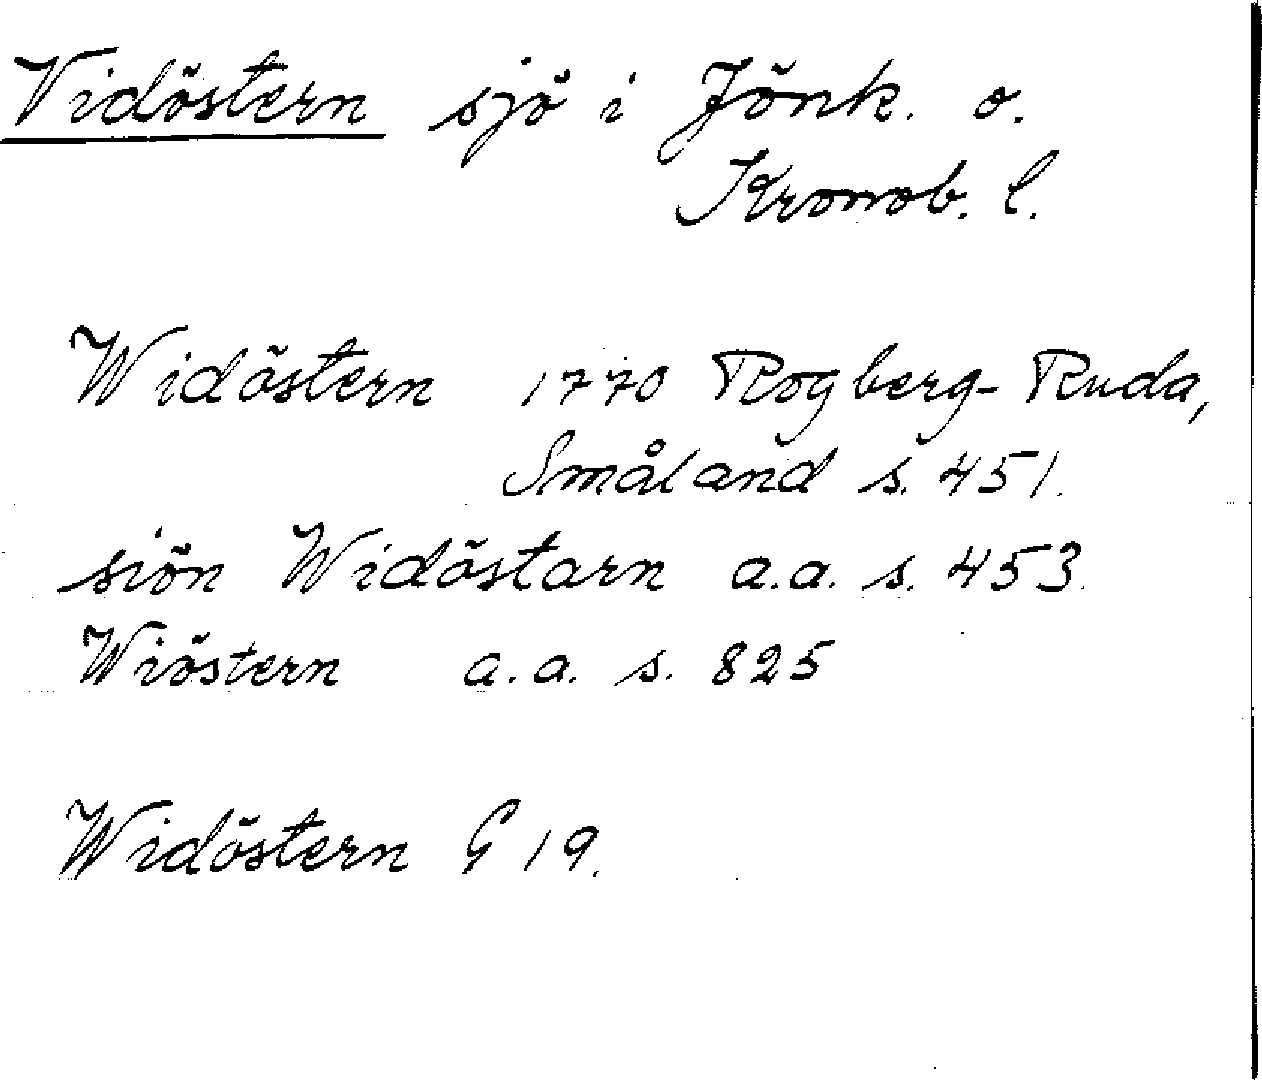 Vidöstern sjö i Jönk. o.
Kronob. l.
Widöstern 1770 Rogberg-Ruda,
Småland s. 451.
siön Widöstarn a.a. s. 453.
Wiöstern a.a. s. 825
Widöstern G 19.